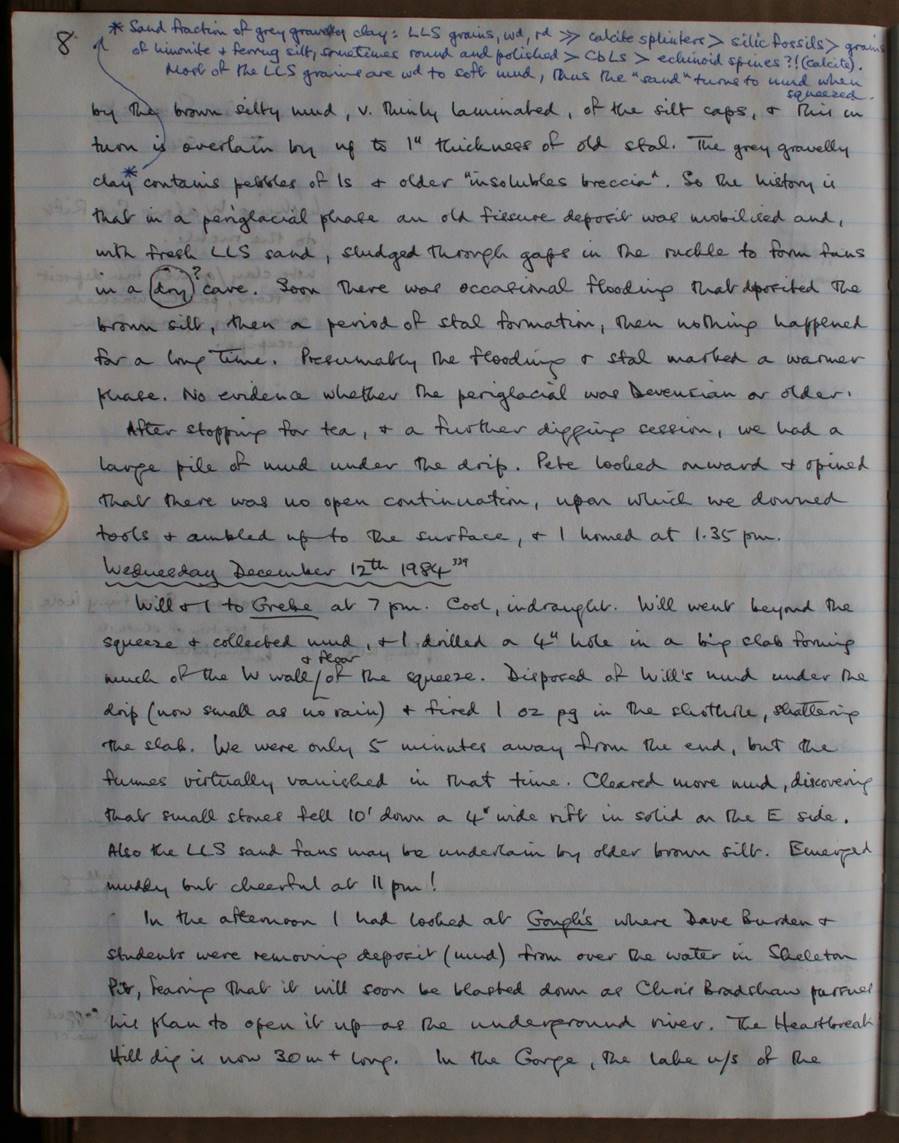 8.
* Sand fraction of grey gravelly clay: LLS grains, wd, rd >> calcite splinters > silic fossils > grains
of limonite & ferrug silt, sometimes round and polished > CbLS > echinoid spines?! (calcite).
Most of the LLS grains are wd to soft mud, thus the "sand" turns to mud when
squeezed.
by the brown silty mud, v. thinly laminated, of the silt caps, & this in
turn is overlain by up to 1" thickness of old stal. The grey gravelly
clay* contains pebbles of ls & older "insolubles breccia". So the history is
that in a periglacial phase an old fissure deposit was mobilised and,
with fresh LLS sand, sludged through gaps in the ruckle to form fans
in a (dry)? cave. Soon there was occasional flooding that deposited the
brown silt, then a period of stal formation, then nothing happened
for a long time. Presumably the flooding & stal marked a warmer
phase. No evidence whether the periglacial was Devensian or older.
After stopping for tea, & a further digging session, we had a
large pile of mud under the drip. Pete looked onward & opined
that there was no open continuation, upon which we downed
tools & ambled up to the surface, & I homed at 1.35 pm.
Wednesday December 12th 1984
Will & I to Grebe at 7 pm. Cool, indraught. Will went beyond the
squeeze & collected mud, & I drilled a 4" hole in a big slab forming
& floor
much of the W wall / of the squeeze. Disposed of Will's mud under the
drip (now small as no rain) & fired 1 oz pg in the shothole, shattering
the slab. We were only 5 minutes away from the end, but the
fumes virtually vanished in that time. Cleared more mud, discovering
that small stones fell 10' down a 4" wide rift in solid on the E side.
Also the LLS sand fans may be underlain by older brown silt. Emerged
muddy but cheerful at 11 pm!
In the afternoon I had looked at Gough's where Dave Burden &
students were removing deposit (mud) from over the water in Skeleton
Pit, fearing that it will soon be blasted down as Chris Bradshaw pursues
his plan to open it up as the underground river. The Heartbreak
Hill dig is now 30 m + long. In the Gorge, the lake u/s of the